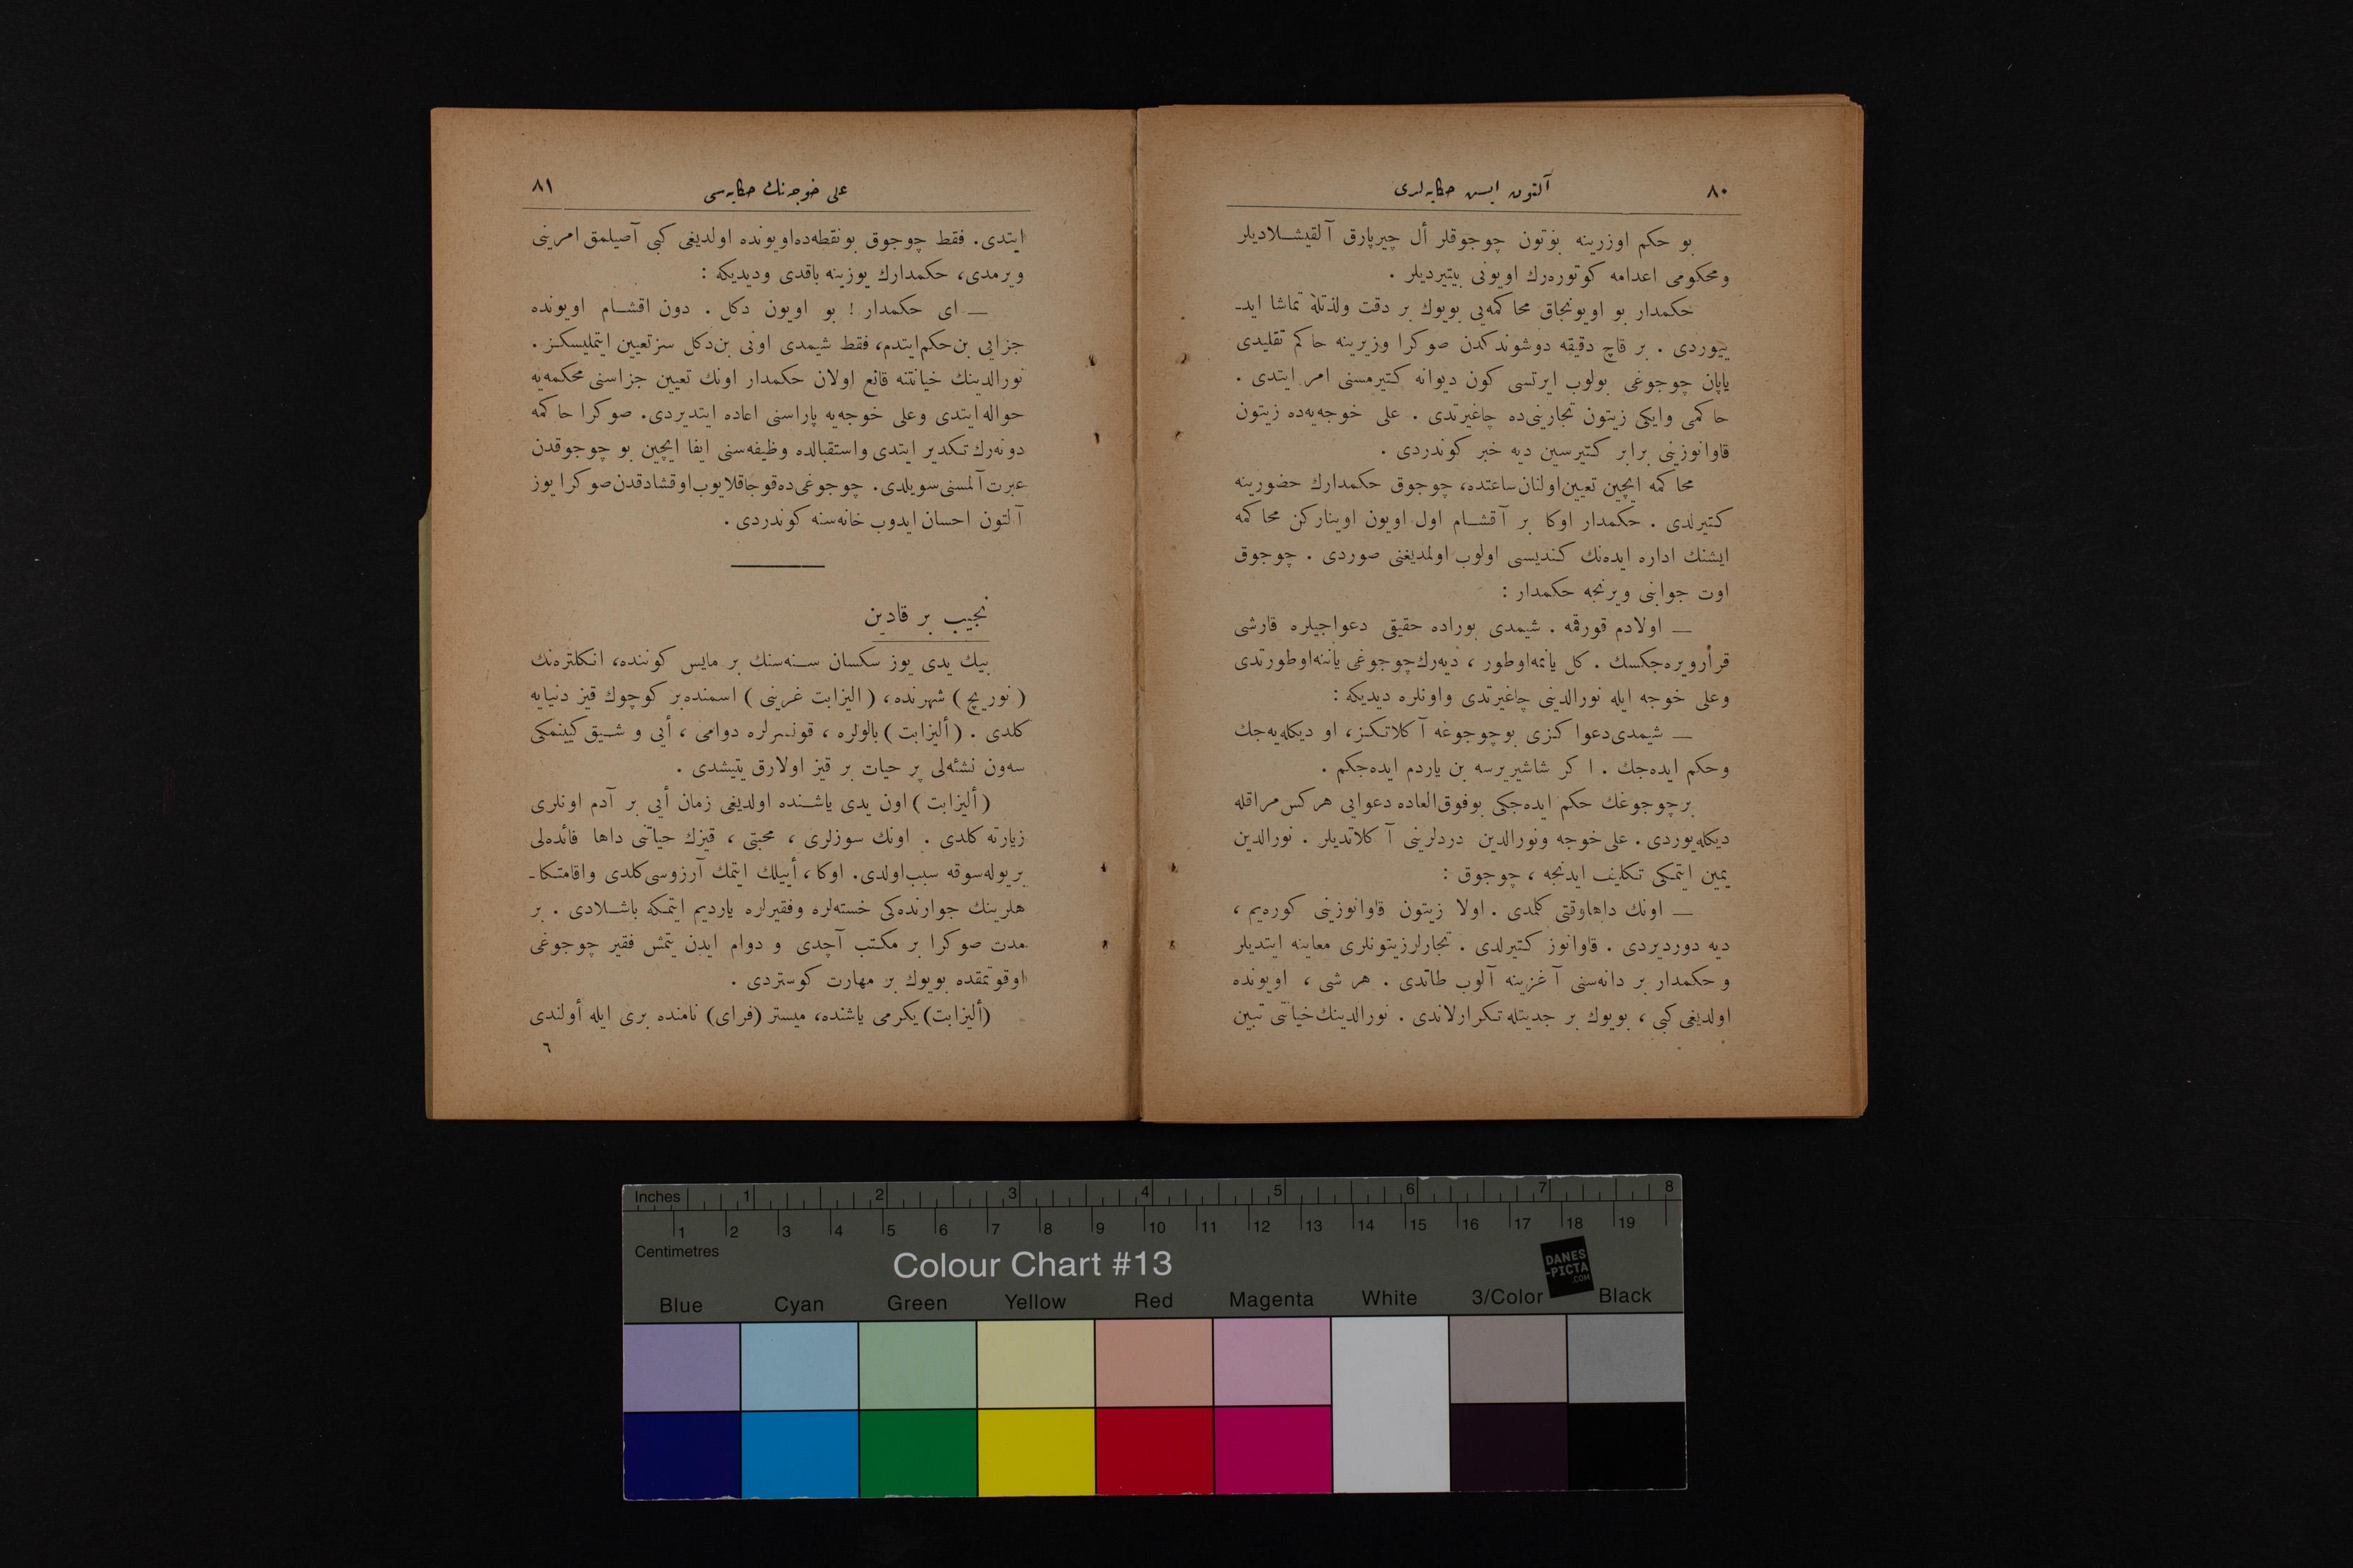 ٨٠
آلتون ایسى حكایه‌لرى
بو حكم اوزرینه بوتون چوجوقلر أل چیرپارق آلقیشلادیلر
ومحكومى اعدامه كوتوره‌رك اویونى بیتیردیلر .
حكمدار بو اویونجاق محاكمه‌یى بویوك بر دقت ولذتله تماشا ایدـ
ییوردى . بر قاچ دقیقه دوشوندكدن صوكرا وزیرینه حاكم تقلیدى
یاپان چوجوغى بولوب ایرتسى كون دیوانه كتیرمسنى امر ایتدى .
حاكمى وایكى زیتون تجارینى‌ده چاغیرتدى . على خوجه‌یه‌ده زیتون
قاوانوزینى برابر كتیرسین دیه خبر كوندردى .
محاكمه ایچین تعیین اولنان ساعتده، چوجوق حكمدارك حضورینه
كتیرلدى . حكمدار اوكا بر آقشام اول اویون اویناركن محاكمه
ایشنك اداره ایده‌نك كندیسى اولوب اولمدیغنى صوردى . چوجوق
اوت جوابنى ویرنجه حكمدار :
— اولادم قورقمه . شیمدى بوراده حقیقى دعواجیلره قارشى
قرار ویره‌جكسك . كل یانمه اوطور ، دیه‌رك چوجوغى یاننه اوطورتدى
وعلى خوجه ایله نورالدینى چاغیرتدى واونلره دیدیكه :
— شیمدى دعوا كزى بو چوجوغه آكلاتكز، او دیكله‌یه‌جك
وحكم ایده‌جك . اكر شاشیریرسه بن یاردم ایده‌جكم .
بر چوجوغك حكم ایده‌جكى بو فوق‌العاده دعوایى هركس مراقله
دیكله‌یوردى . على خوجه ونورالدین دردلرینى آكلاتدیلر . نورالدین
یمین ایتمكى تكلیف ایدنجه ، چوجوق :
— اونك داها وقتى كلمدى . اولا زیتون قاوانوزینى كوره‌یم ،
دیه دوردیردى . قاوانوز كتیرلدى . تجارلر زیتونلرى معاینه ایتدیلر
و حكمدار بر دانه‌سنى آغزینه آلوب طاتدى . هر شى ، اویونده
اولدیغى كبى ، بویوك بر جدیتله تكرارلاندى . نورالدینك خیانتى تبین
على خوجه‌نك حكایه‌سى
٨١
ایتدى. فقط چوجوق بو نقطه‌ده اویونده اولدیغى كبى آصیلمق امرینى
ویرمدى، حكمدارك یوزینه باقدى ودیدیكه :
— اى حكمدار ! بو اویون دكل . دون اقشام اویونده
جزایى بن حكم ایتدم، فقط شیمدى اونى بن دكل سز تعیین ایتملیسكز .
نورالدینك خیانتنه قانع اولان حكمدار اونك تعیین جزاسنى محكمه‌یه
حواله ایتدى وعلى خوجه‌یه پاراسنى اعاده ایتدیردى. صوكرا حاكمه
دونه‌رك تكدیر ایتدى واستقبالده وظیفه‌سنى ایفا ایچین بو چوجوقدن
عبرت آلمسنى سویلدى. چوجوغى‌ده قوجاقلایوب اوقشادقدن صوكرا یوز
آلتون احسان ایدوب خانه‌سنه كوندردى .
نجیب بر قادین
بیك یدى یوز سكسان سنه‌سنك بر مایس كوننده، انكلتره‌نك
(نوریچ) شهرنده، (الیزابت غرینى) اسمنده بر كوچوك قیز دنیایه
كلدى . (ألیزابت) بالولره ، قونسرلره دوامى ، أیى و شیق كیینمكى
سه‌ون نشئه‌لى پر حیات بر قیز اولارق یتیشدى .
(ألیزابت) اون یدى یاشنده اولدیغى زمان أیى بر آدم اونلرى
زیارته كلدى . اونك سوزلرى ، محبتى ، قیزك حیاتنى داها فائده‌لى
بر یوله سوقه سبب اولدى. اوكا ، أییلك ایتمك آرزوسى كلدى واقامتكاـ
هلرینك جوارنده‌كى خسته‌لره وفقیرلره یاردیم ایتمكه باشلادى . بر
مدت صوكرا بر مكتب آچدى و دوام ایدن یتمش فقیر چوجوغى
اوقوتمقده بویوك بر مهارت كوستردى .
(ألیزابت) یكرمى یاشنده، میستر (فراى) نامنده برى ایله أولندى
٦
Inches 1 2 3 4 5 6 7 8
1 2 3 4 5 6 7 8 9 10 11 12 13 14 15 16 17 18 19
Centimetres
Colour Chart #13
DANES
-PICTA
.COM
Blue Cyan Green Yellow Red Magenta White 3/Color Black